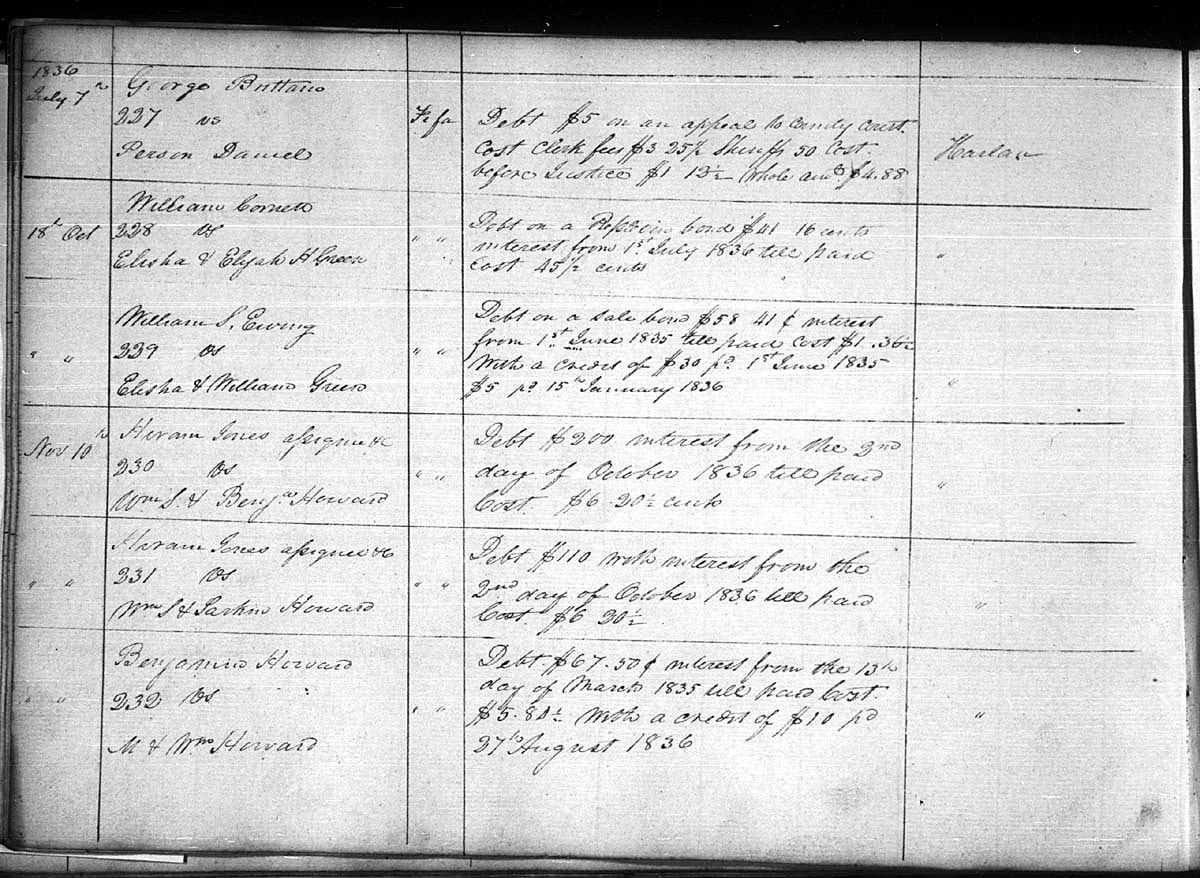 1836
July 7th
George Brittain
227 vs
Person Daniel
Fi fa
Debt $5 on an appeal to County court.
Cost Clerk fees $3 25½ Sheriffs 50 Cost
before Justice $1 12½ Whole amt $4.88
Harlan
18th Oct
William Cornett
228 vs
Elisha & Elijah H Green
" "
Debt on a Replevin bond $41 16 cents
interest from 1st July 1836 till paid
Cost 45½ cents
"
" "
William S. Ewing
229 vs
Elisha & William Green
" "
Debt on a sale bond $58 41 ¢ interest
from 1st June 1835 till paid cost $1.36½
With a credit of $30 pd 1st June 1835
$5 pd 15th January 1836
"
Nov 10th
Hiram Jones assignee &c
230 vs
Wm S. & Benja Howard
" "
Debt $200 interest from the 2nd
day of October 1836 till paid
Cost $6.20½ cents
"
" "
Hiram Jones assignee &c
231 vs
Wm S & Larkin Howard
" "
Debt $110 with interest from the
2nd day of October 1836 till paid
Cost $6 20½
"
" "
Benjamin Howard
232 vs
M & Wm Howard
" "
Debt $67.50 ¢ interest from the 13th
day of March 1835 till paid Cost
$5.80½ With a credit of $10 pd
27th August 1836
"